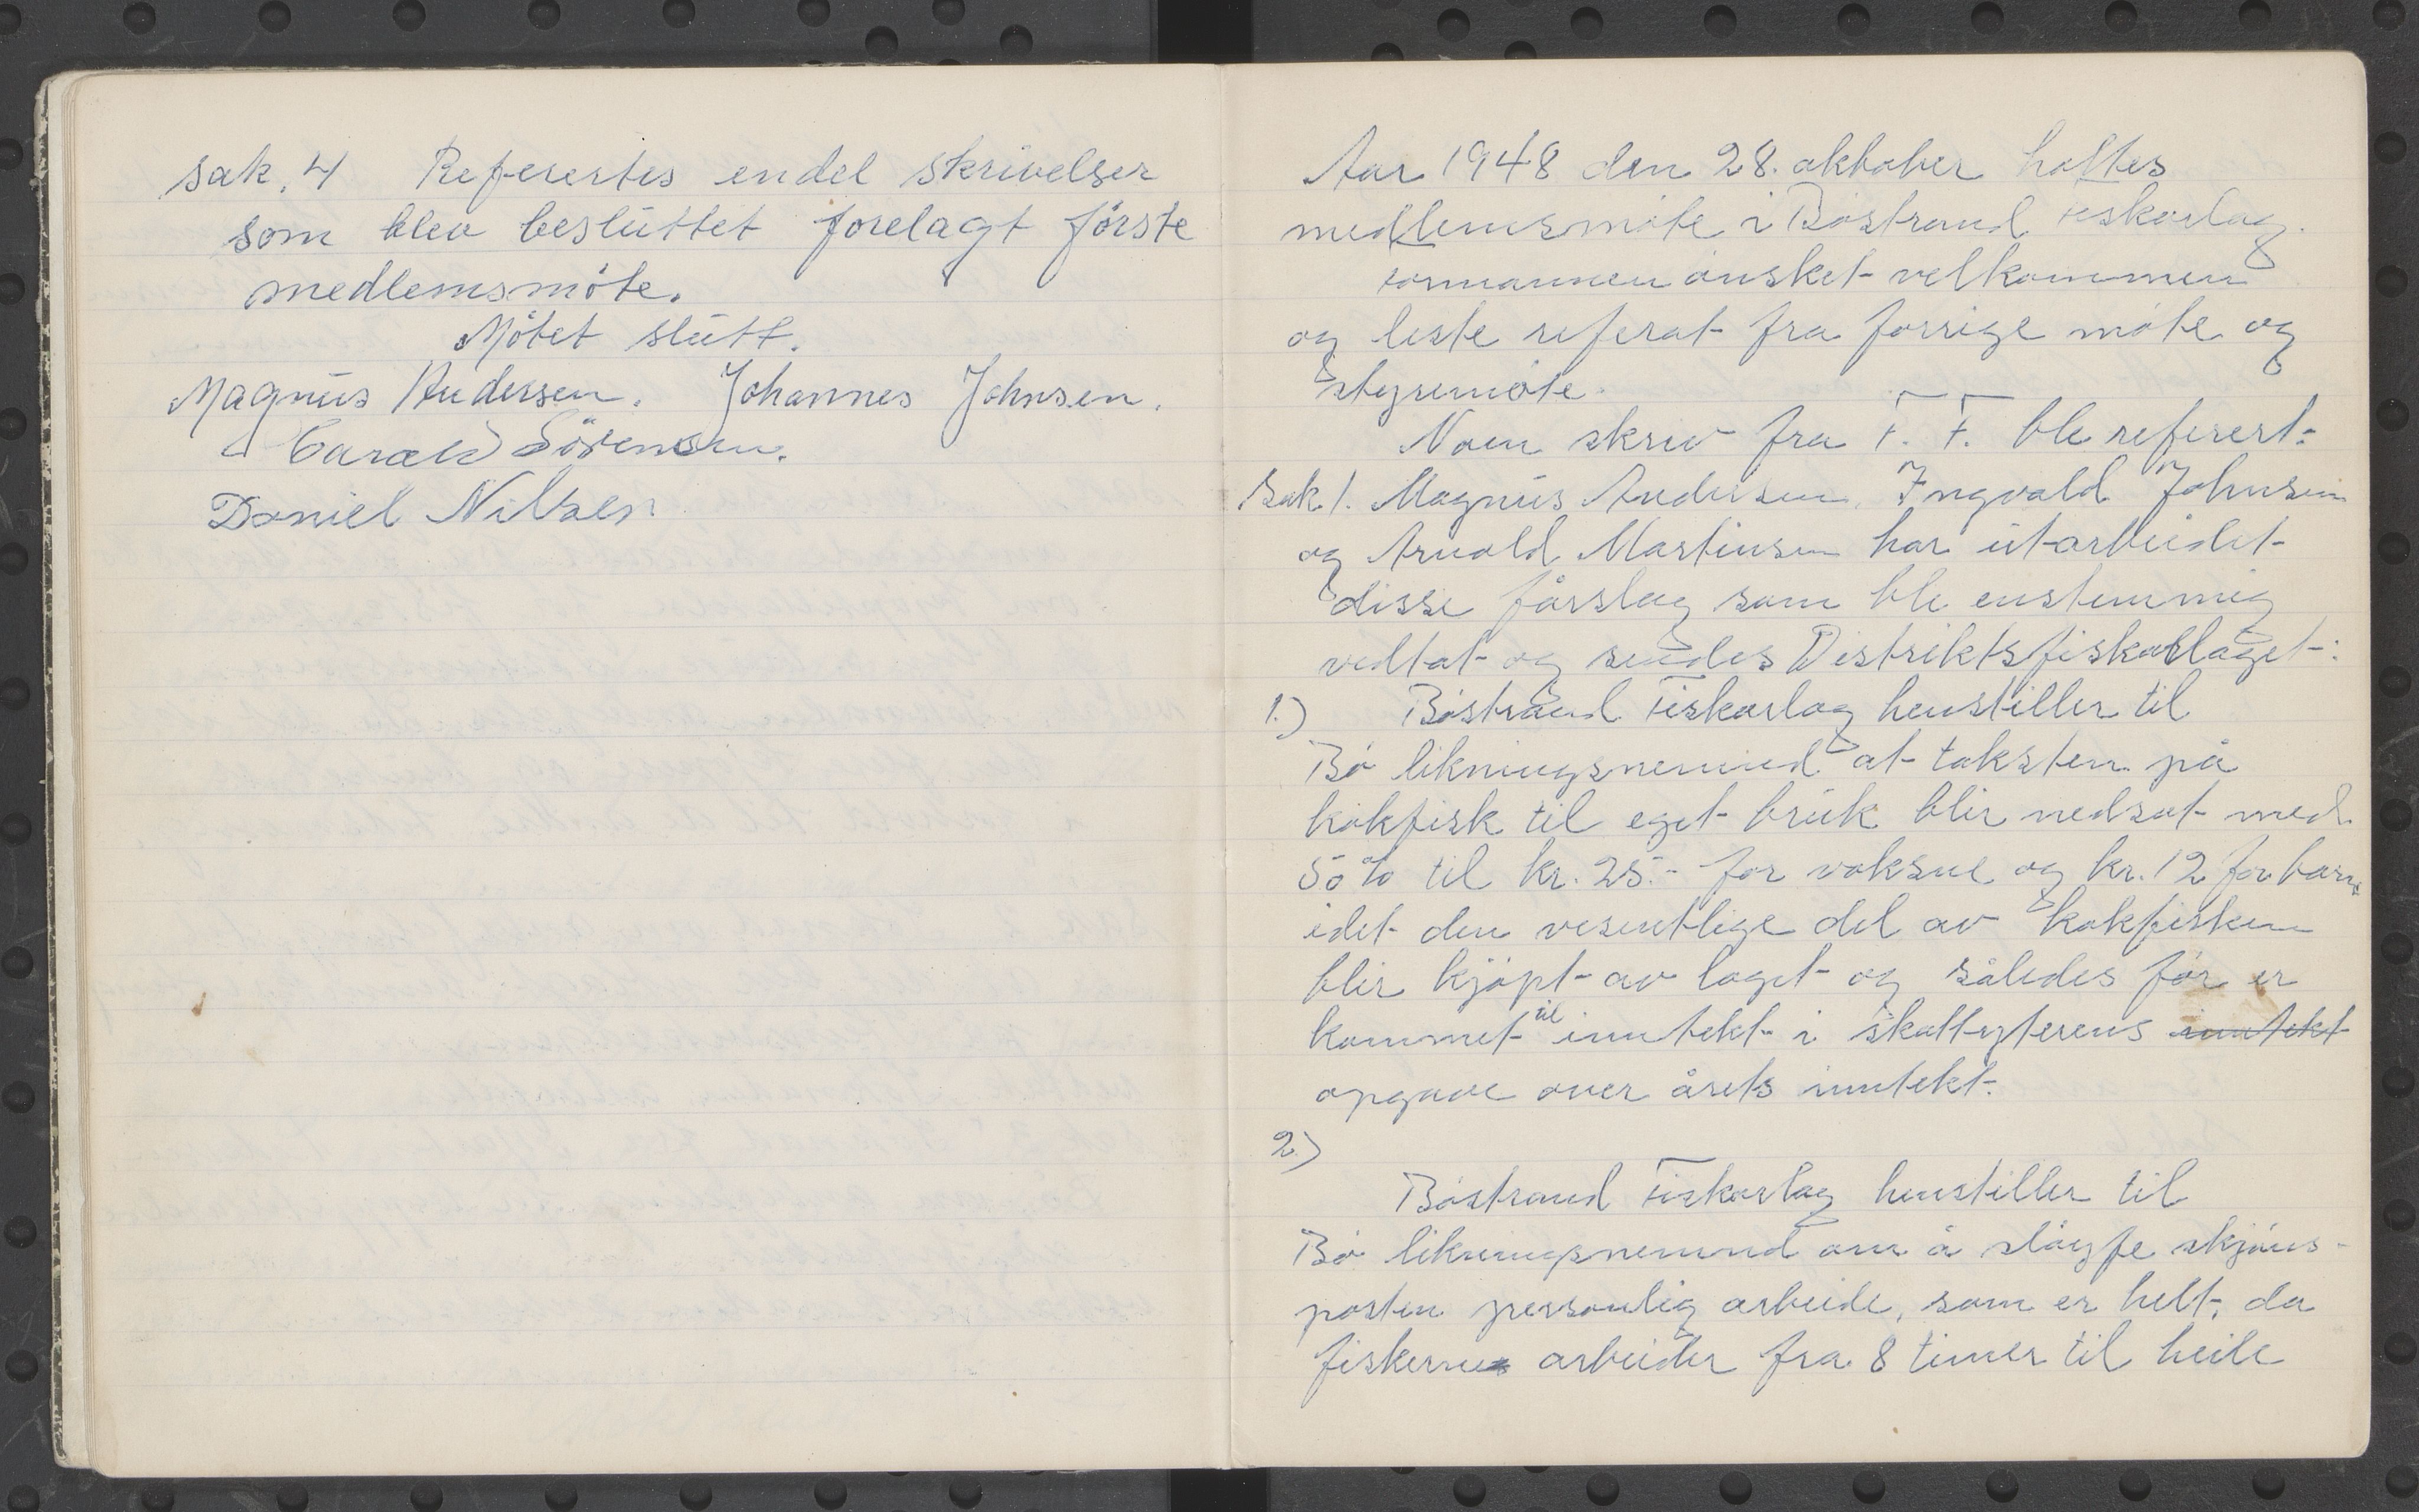 sak. 4 Refererertes endel skrivelser
som blev beslúttet forelagt første
medlemsmöte.
Mötet slútt.
Magnús Andersen. Johannes Johnsen.
Sörensen.
Daniel Nilsen
Aar 1948 den 28. oktober holtes
medlemsmöte i Böstrand Fiskarlag.
Formannen önsket velkommen
og leste referat fra forrige möte og
styremöte.
Noen skriv fra F. F. ble referert.
Sak 1. Magnús Andersen, Ingvald Johnsen
og Arnold Martinsen har útarbeidet
disse förslag som ble enstemmig
vedtat og sendes Distriktsfiskarlaget:
1.) Böstrand Fiskarlag henstiller til
Bö likningsnemnd at taksten på
kokfisk til eget brúk blir nedsat med
50 % til kr. 25.- for voksne og kr. 12 for barn,
idet den vesentlige del av kokfisken
blir kjöpt av laget og således för er
kommet til inntekt i skattyterens inntekt
opgave over årets inntekt.
2.)
Böstrand Fiskarlag henstiller til
Bö likningsnemnd om å slöyfe skjöns-
posten personlig arbeide, som er helt, da
fiskerne arbeider fra 8 timer til heile